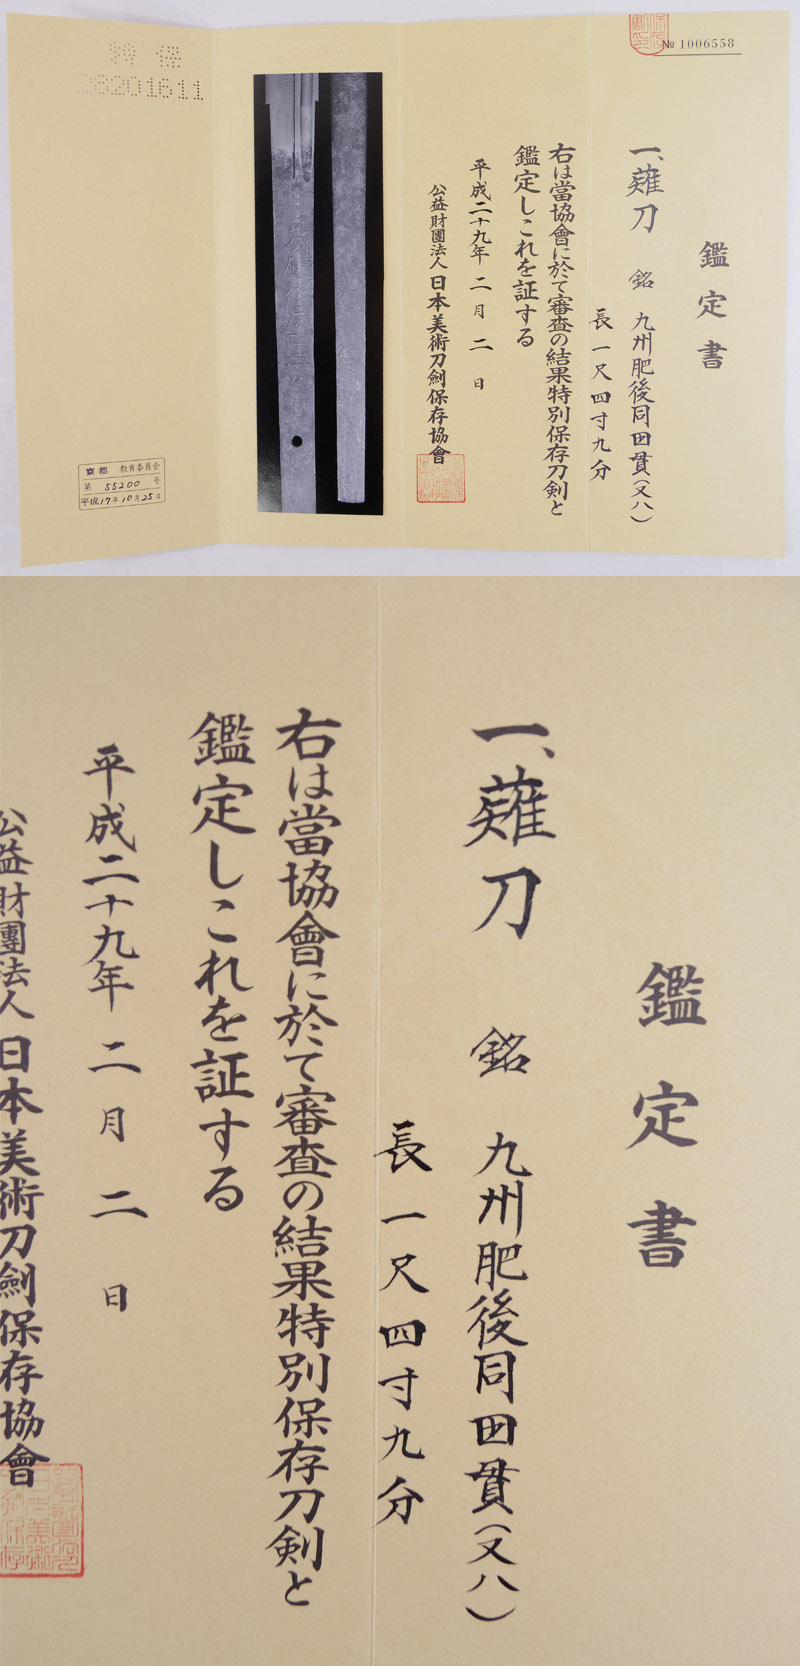 № 1006558
鑑定書
一、薙刀 銘 九州肥後同田貫(又八)
長一尺四寸九分
右は當協會に於て審査の結果特別保存刀剣と
鑑定しこれを証する
平成二十九年 二月 二日
公益財團法人日本美術刀劍保存協會
特保
28201611
京都 教育委員会
第 55200 号
平成17年10月25日
鑑定書
一、薙刀 銘 九州肥後同田貫(又八)
長一尺四寸九分
右は當協會に於て審査の結果特別保存刀剣と
鑑定しこれを証する
平成二十九年 二月 二日
公益財團法人日本美術刀劍保存協會